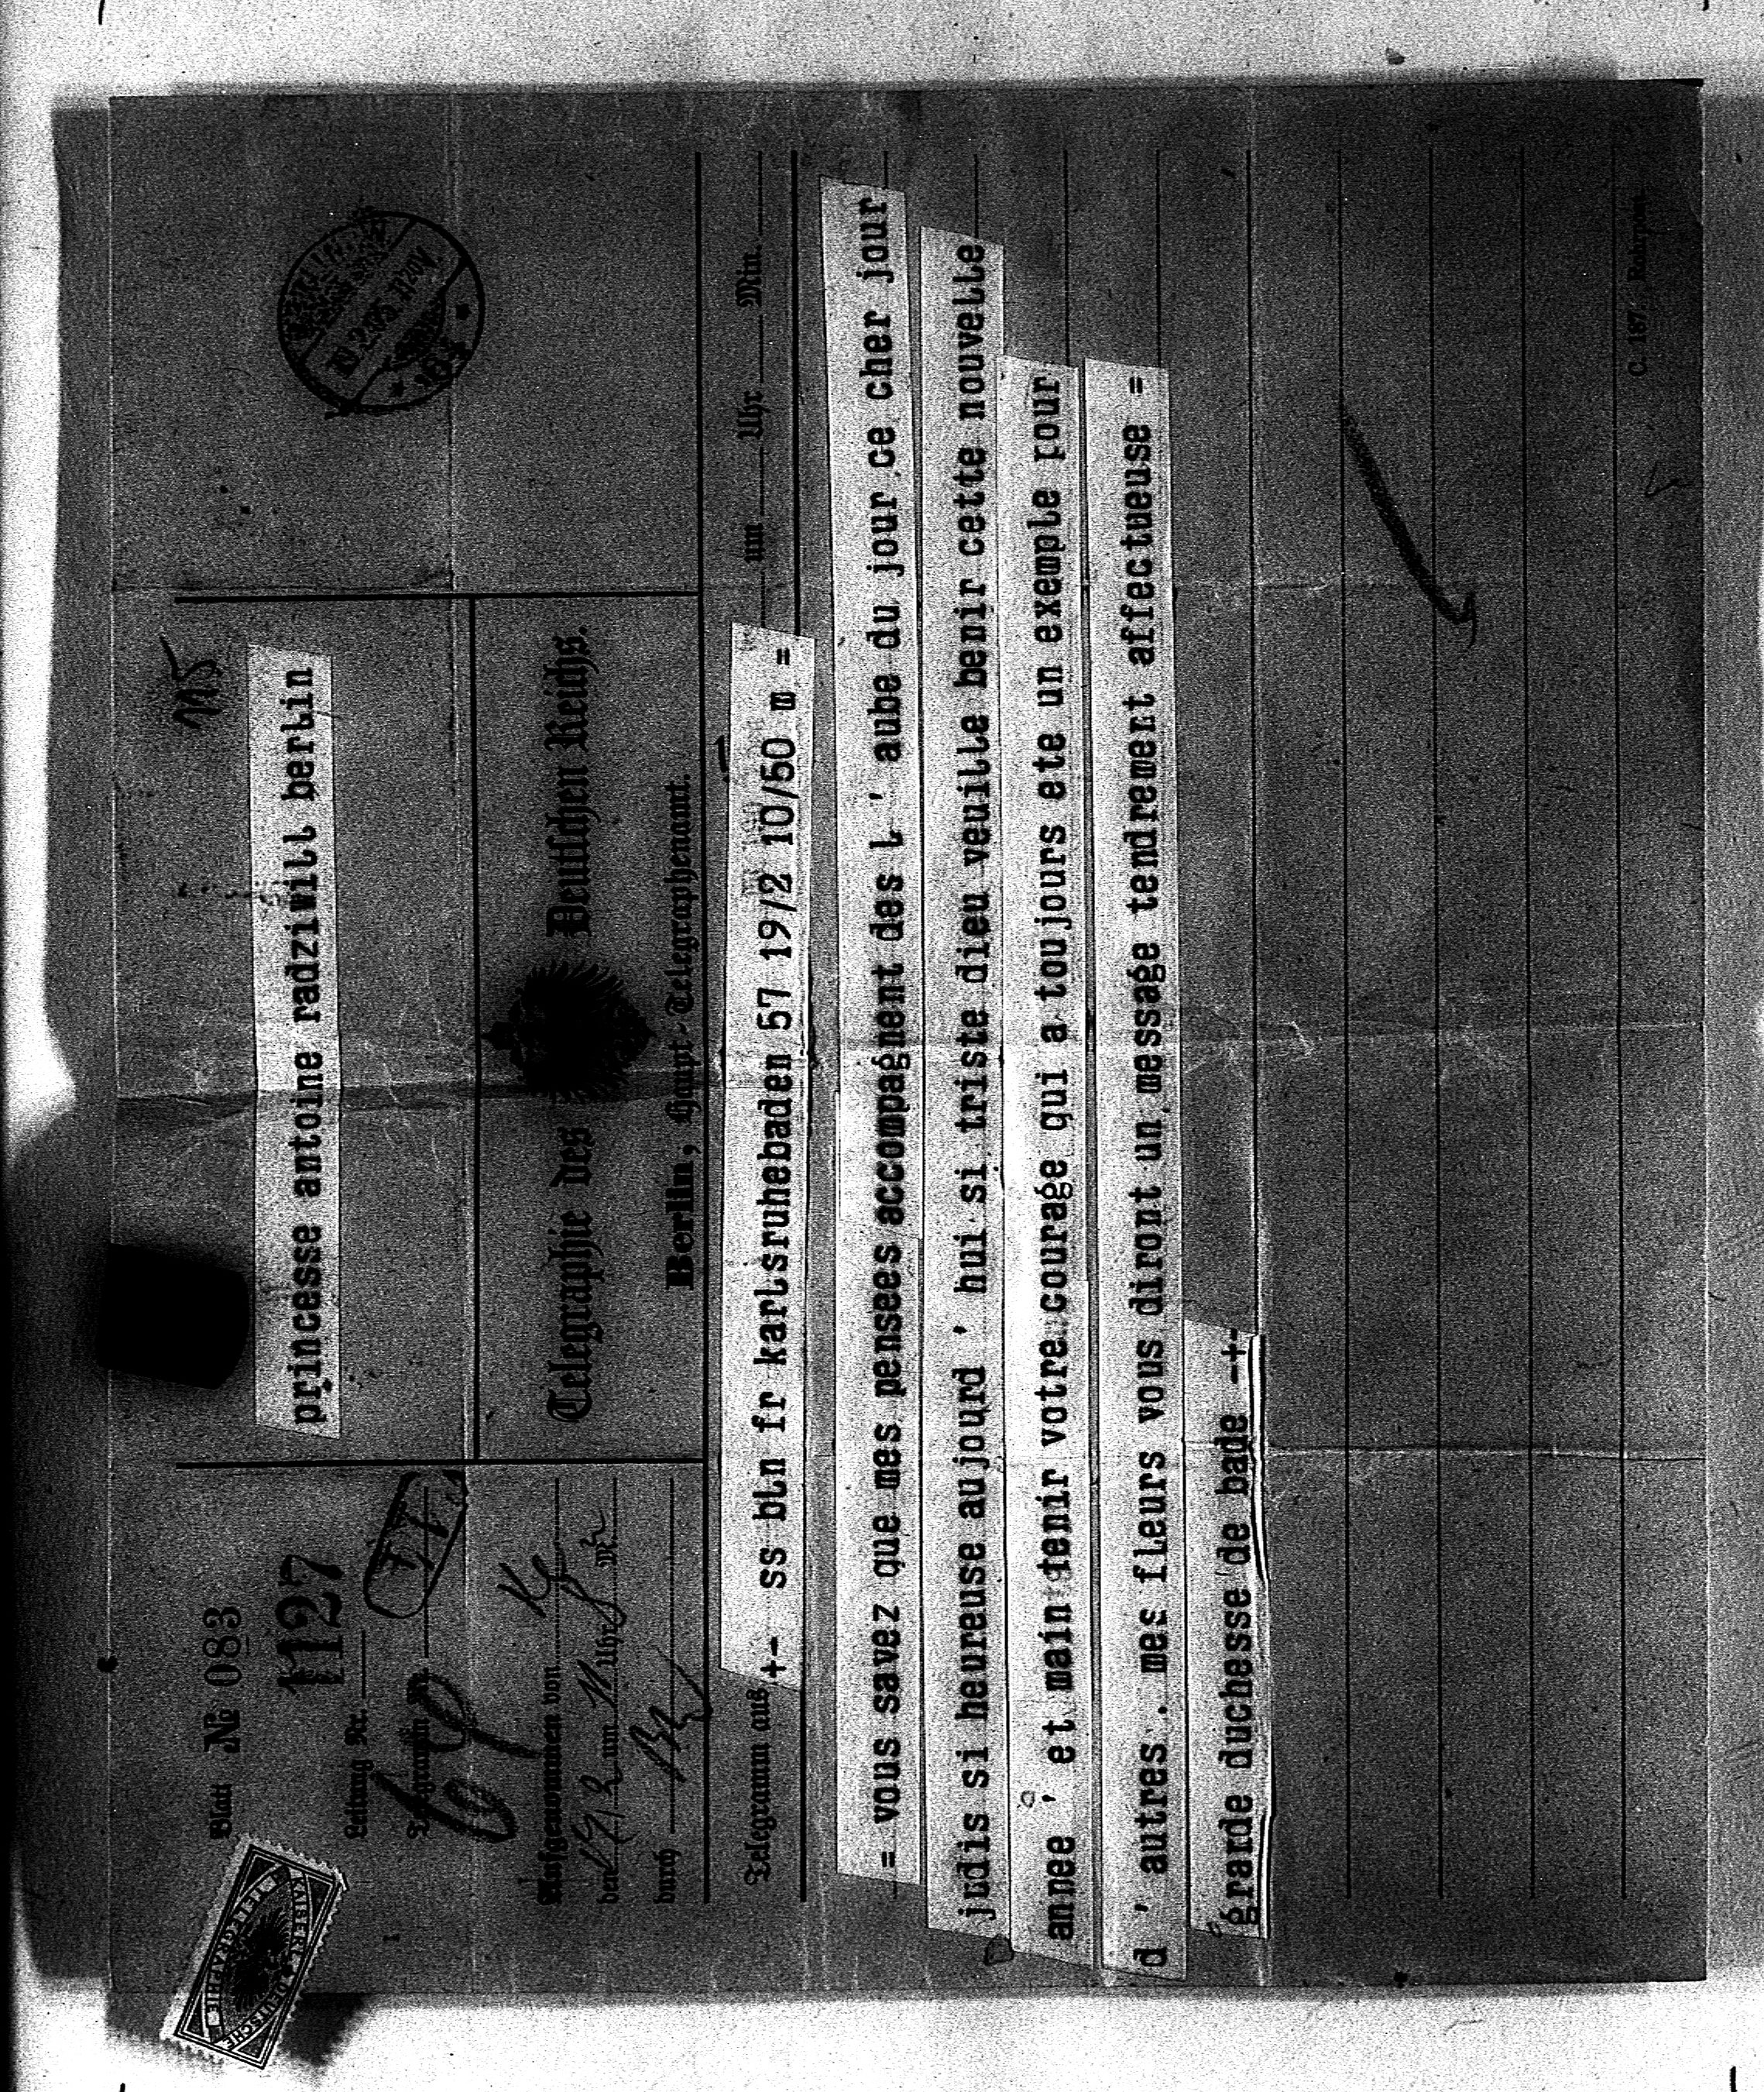 Blatt № 083
1127
Leitung Nr.
Telegramm Nr.
Aufgenommen von
den 19/2 um 11 Uhr M.
durch
princesse antoine radziwill berlin
Telegraphie des Deutschen Reichs.
Berlin, Haupt-Telegraphenamt.
Telegramm aus +- ss bln fr karlsruhebaden 57 19/2 10/50 m = um Uhr Min.
= vous savez que mes pensees accompagnent des l ' aube du jour ce cher jour
jadis si heureuse aujourd ' hui si triste dieu veuille benir cette nouvelle
annee ' et main tenir votre courage qui a toujours ete un exemple pour
d ' autres . mes fleurs vous diront un message tendrement affectueuse =
grande duchesse de bade -+-
C. 187.
KAISERL. DEUTSCHE
TELEGRAPHIE